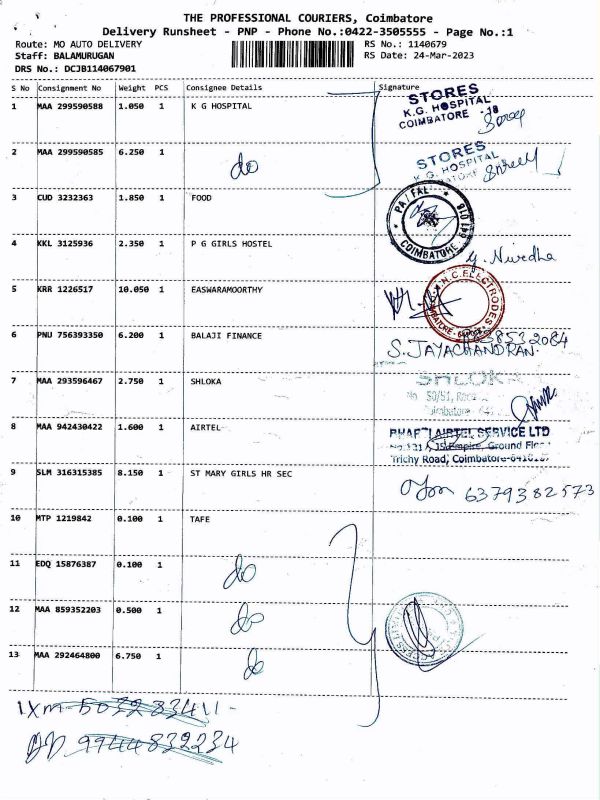 THE PROFESSIONAL COURIERS, Coimbatore
Delivery Runsheet - PNP - Phone No.:0422-3505555 - Page No.:1
Route: MO AUTO DELIVERY RS No.: 1140679
Staff: BALAMURUGAN RS Date: 24-Mar-2023
DRS No.: DCJB114067901
S No Consignment No Weight PCS Consignee Details Signature
1 MAA 299590588 1.050 1 K G HOSPITAL
STORES
K.G. HOSPITAL
COIMBATORE - 18
2 MAA 299590585 6.250 1 do
STORES
K.G. HOSPITAL
3 CUD 3232363 1.850 1 FOOD
COIMBATORE
4 KKL 3125936 2.350 1 P G GIRLS HOSTEL
y. Nivedha
5 KRR 1226517 10.050 1 EASWARAMOORTHY
N.C.ELECTRODES
6 PNU 756393350 6.200 1 BALAJI FINANCE
S.JAYACHANDRAN.
7 MAA 293596467 2.750 1 SHLOKA
SHLOKA
No 50/51,
8 MAA 942430422 1.600 1 AIRTEL
AIRTEL SERVICE LTD
Empire, Ground
Trichy Road, Coimbatore-
9 SLM 316315385 8.150 1 ST MARY GIRLS HR SEC
6379382573
10 MTP 1219842 0.100 1 TAFE
11 EDQ 15876387 0.100 1 do
12 MAA 859352203 0.500 1 do
13 MAA 292464800 6.750 1 do
9944832234